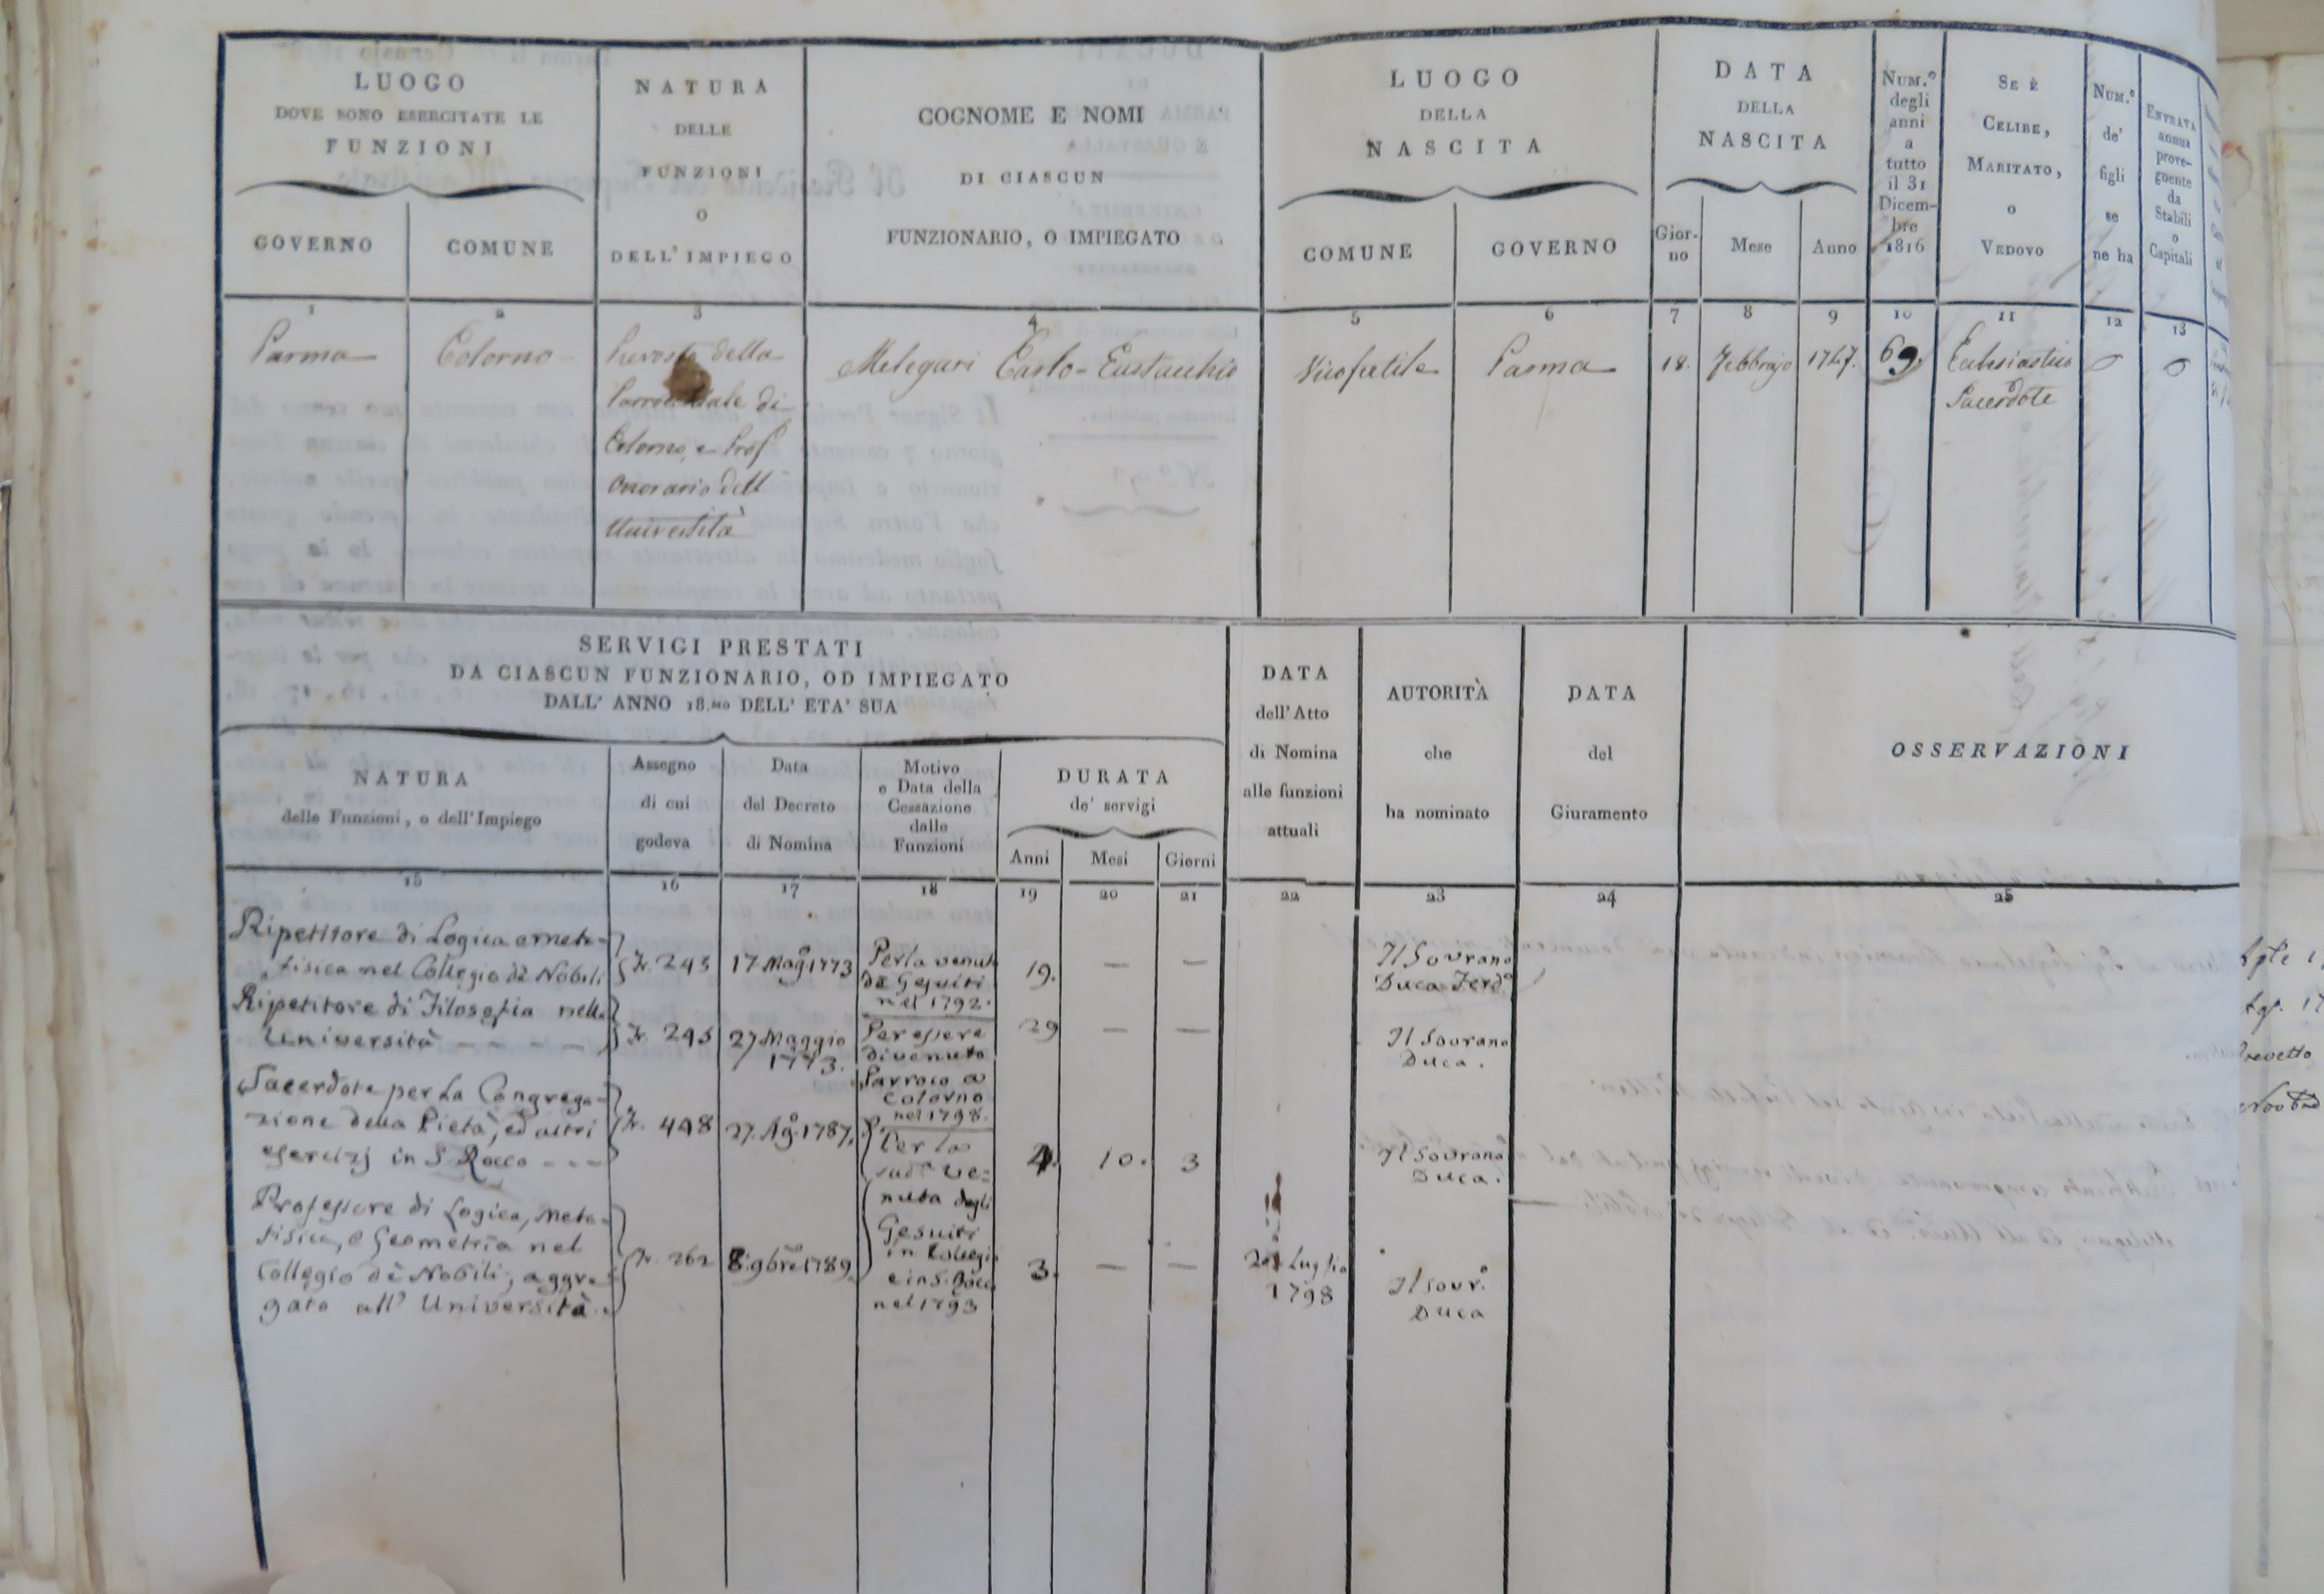 LUOGO
DOVE SONO ESERCITATE LE
FUNZIONI
GOVERNO
COMUNE
NATURA
DELLE
FUNZIONI
O
DELL' IMPIEGO
COGNOME E NOMI
DI CIASCUN
FUNZIONARIO, O IMPIEGATO
LUOGO
DELLA
NASCITA
COMUNE
GOVERNO
DATA
DELLA
NASCITA
Gior-
no
Mese
Anno
NUM.º
degli
anni
a
tutto
il 31
Dicem-
bre
1816
SE È
CELIBE,
MARITATO,
O
VEDOVO
NUM.º
de'
figli
se
ne ha
ENTRATA
annua
prove-
gnente
da
Stabili
o
Capitali
1
2
3
4
5
6
7
8
9
10
11
12
13
Parma
Colorno
Prevosto della
Parrocchiale di
Colorno, e Prof
Onorario dell
Università
Melegari Carlo-Eustachio
Vicofertile
Parma
18.
Febbrajo
1747.
69.
Eclesiastico
Sacerdote
0
0
SERVIGI PRESTATI
DA CIASCUN FUNZIONARIO, OD IMPIEGATO
DALL' ANNO 18.MO DELL' ETA' SUA
NATURA
delle Funzioni, o dell'Impiego
Assegno
di cui
godeva
Data
del Decreto
di Nomina
Motivo
e Data della
Cessazione
dalle
Funzioni
DURATA
de' servigi
Anni
Mesi
Giorni
DATA
dell'Atto
di Nomina
alle funzioni
attuali
AUTORITÀ
che
ha nominato
DATA
del
Giuramento
OSSERVAZIONI
15
16
17
18
19
20
21
22
23
24
25
Ripetitore di Logica e meta-
fisica nel Collegio dè Nobili
Fr. 245
17. Magº 1773
Per la venuta
de Gesuiti
nel 1792.
19.
—
—
Il Sovrano
Duca Ferdº
Ripetitore di Filosofia nella
Università - - - -
Fr. 245
27. Maggio
1773.
Per essere
divenuto
Parroco a
Colorno
nel 1798.
29
—
—
Il Sovrano
Duca.
Sacerdote per la Congrega-
zione della Pietà, ed altri
esercizj in S. Rocco - - -
Fr. 498
27. Agº 1787.
Per la
sudª ve-
nuta degli
Gesuiti
in Collegio
e in S. Rocco
nel 1793
4.
10.
3
Il Sovrano
Duca.
Professore di Logica, Meta-
fisica, e Geometria nel
Collegio dè Nobili, aggre-
gato all' Università.
Fr. 262
8. 9bre 1789.
3.
—
—
Luglio
1798
Il Sovrº
Duca